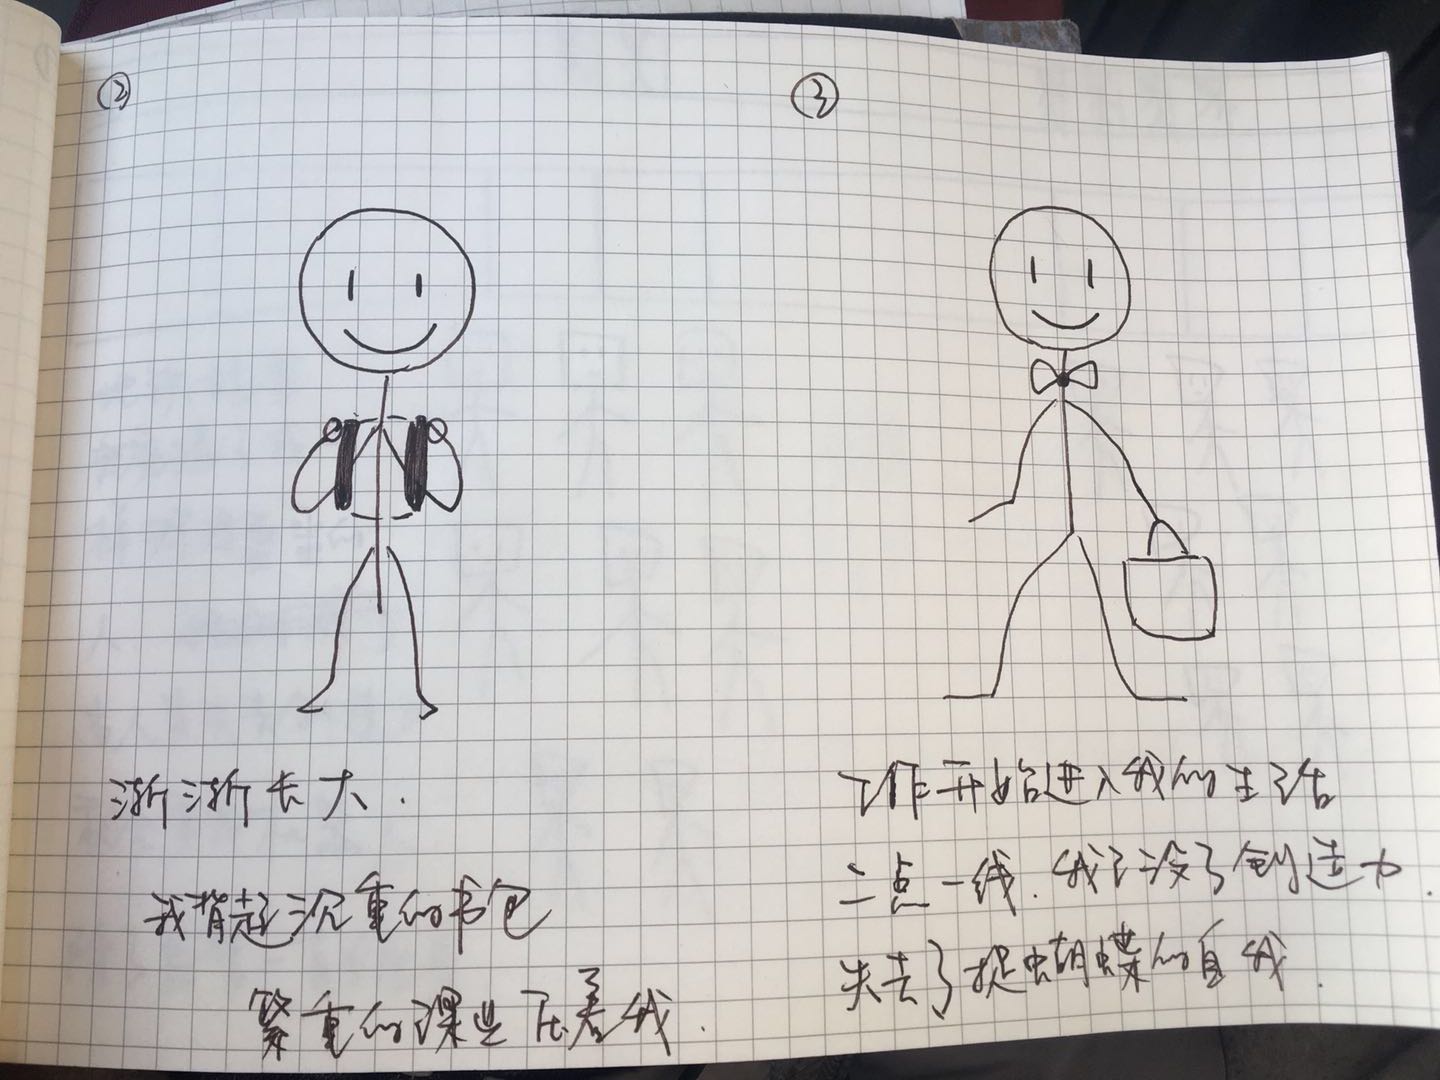 ②
渐渐长大.
我背起沉重的书包
繁重的课业压着我.
③
工作开始进入我的生活
二点一线.我没了创造力.
失去了捉蝴蝶的自我.